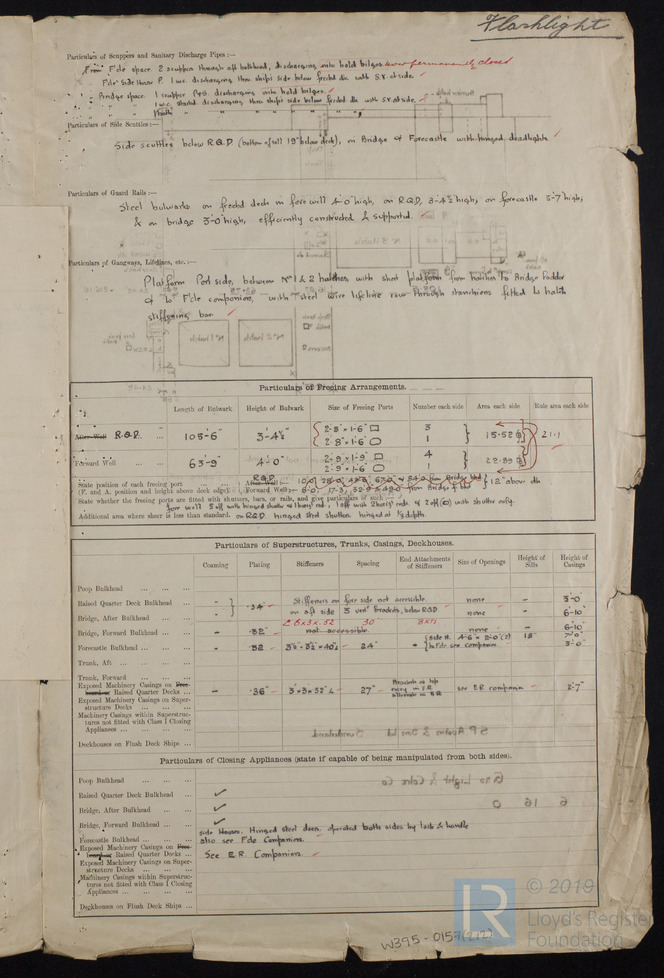 Flashlight
Particulars of Scuppers and Sanitary Discharge Pipes :—
From F'dle space 2 scuppers through aft bulkhead, discharging into hold bilges. now permanently closed
F'dle side house P. 1 w.c. discharging thro ships side below freebd dk with S.V. at side.
Bridge space. 1 scupper P&S. discharging into hold bilges.
1 w.c. starbd discharging thro ships side below freebd dk with S.V. at side.
Particulars of Side Scuttles :—
Side scuttles below R.Q.D. (bottom of sill 19" below deck), in Bridge & Forecastle with hinged deadlights.
Particulars of Guard Rails :—
Steel bulwarks on freebd deck in fore well 4'-0" high, on R.Q.D. 3'-4½" high, on forecastle 3'-7" high,
& on bridge 3'-0" high, efficiently constructed & supported.
Particulars of Gangways, Lifelines, etc. :—
Platform Port side, between Nº 1 & 2 hatches, with short platform from hatches to Bridge Ladder
& to F'dle companion, with steel wire lifeline rove through stanchions fitted to hatch
stiffening bar
Particulars of Freeing Arrangements.
Length of Bulwark Height of Bulwark Size of Freeing Ports Number each side Area each side Rule area each side
After Well R.Q.D. ... 105'-6" 3'-4½" 2'-8" × 1'-6" 3 15.52 21.1
2'-8" × 1'-6" 1
Forward Well ... 63'-9" 4'-0" 2'-9" × 1'-9" 4 22.89
2'-9" × 1'-6" 1
State position of each freeing port ... R.Q.D. After Well :— from Bridge Bhd 12" above dk
(F. and A. position and height above deck edge) Forward Well :— from Bridge
State whether the freeing ports are fitted with shutters, bars, or rails, and give particulars of such :—
fore well 3 off with hinged shutter & 1 horiz rod, 1 off with 2 horiz rods & 2 off with shutter only.
Additional area where sheer is less than standard. on R.Q.D. hinged steel shutters hinged at ⅓ depth
Particulars of Superstructures, Trunks, Casings, Deckhouses.
Coaming Plating Stiffeners Spacing End Attachments of Stiffeners Size of Openings Height of Sills Height of Casings
Poop Bulkhead ... ... ...
Raised Quarter Deck Bulkhead ... - .34" Stiffeners on fore side not accessible none - 3'-0"
Bridge, After Bulkhead ... ... - on aft side 3 vert brackets, below RQD none - 6'-10"
6 x 3 x .32 30
Bridge, Forward Bulkhead ... ... - .32" not accessible none - 6'-10"
Forecastle Bulkhead ... ... ... - .32 3½" × 3½" × .40 24" - side H. 4'-6" × 2'-0" (2) 18" 7'-0"
to F'dle see companion 3'-0"
Trunk, Aft ... ... ...
Trunk, Forward ... ... ...
Exposed Machinery Casings on Free-
board or Raised Quarter Decks ... - .36" 3" × 3" × .32" 27" see E.R. companion 2'-7"
Exposed Machinery Casings on Super-
structure Decks ... ... ...
Machinery Casings within Superstruc-
tures not fitted with Class I Closing
Appliances ... ... ...
Deckhouses on Flush Deck Ships ...
Particulars of Closing Appliances (state if capable of being manipulated from both sides).
Poop Bulkhead ... ... ...
Raised Quarter Deck Bulkhead ... ✓
Bridge, After Bulkhead ... ... ✓
Bridge, Forward Bulkhead ... ... ✓
Forecastle Bulkhead ... ... ... side Houses. Hinged steel doors, operated both sides by lock & handle
also see F'dle Companion.
Exposed Machinery Casings on Free-
board or Raised Quarter Decks ... See E.R. Companion.
Exposed Machinery Casings on Super-
structure Decks ... ... ...
Machinery Casings within Superstruc-
tures not fitted with Class I Closing
Appliances ... ... ...
Deckhouses on Flush Deck Ships ...
LR
© 2019
Lloyd's Register
Foundation